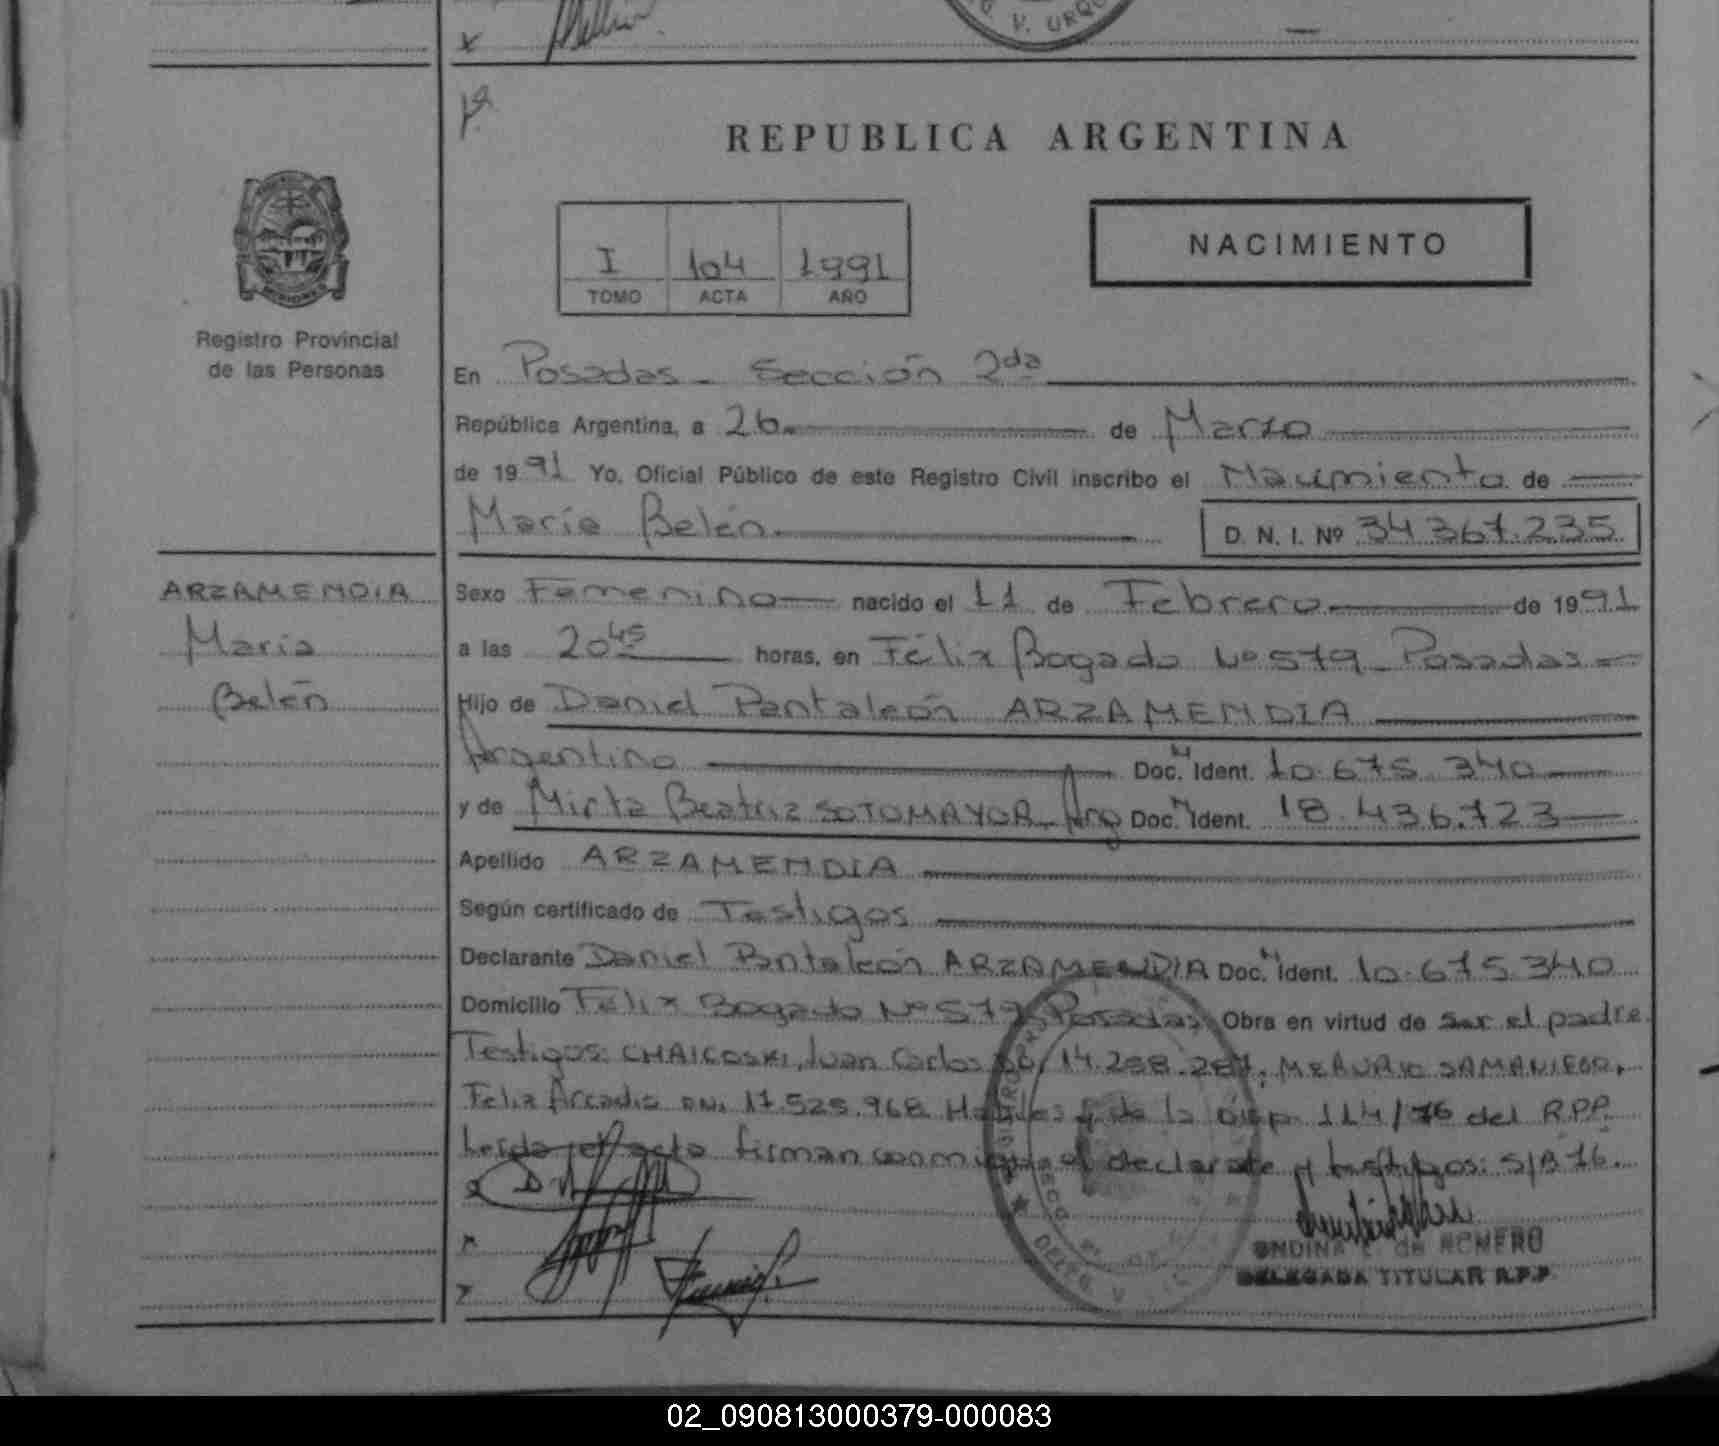 V. URQU
REPUBLICA ARGENTINA
NACIMIENTO
I 104 1991
TOMO ACTA AÑO
MISIONES
Registro Provincial
de las Personas
En Posadas - Sección 2da
República Argentina, a 26 de Marzo
de 1991 Yo, Oficial Público de este Registro Civil inscribo el Nacimiento de
María Belén D. N. I. Nº 34.367.235
ARZAMENDIA
María
Belén
Sexo Femenino nacido el 11 de Febrero de 1991
a las 20 45 horas, en Félix Bogado Nº 579 - Posadas
Hijo de Daniel Pantaleón ARZAMENDIA
Argentino Doc. N Ident. 10.675.340
y de Mirta Beatriz SOTOMAYOR - Arg Doc. N Ident. 18.436.723
Apellido ARZAMENDIA
Según certificado de Testigos
Declarante Daniel Pantaleón ARZAMENDIA Doc. N Ident. 10.675.340
Domicilio Félix Bogado Nº 579 Posadas Obra en virtud de ser el padre.
Testigos: CHAICOSKI, Juan Carlos 14.288.287, SAMANIEGO,
Felix Arcadio DNI 17.525.968 de la Disp. 114/76 del R.P.P.
Leída el acta firman conmigo el declarate y testigos: S/B 76.
ONDINA E. de ROMERO
DELEGADA TITULAR R.P.P.
02_090813000379-000083